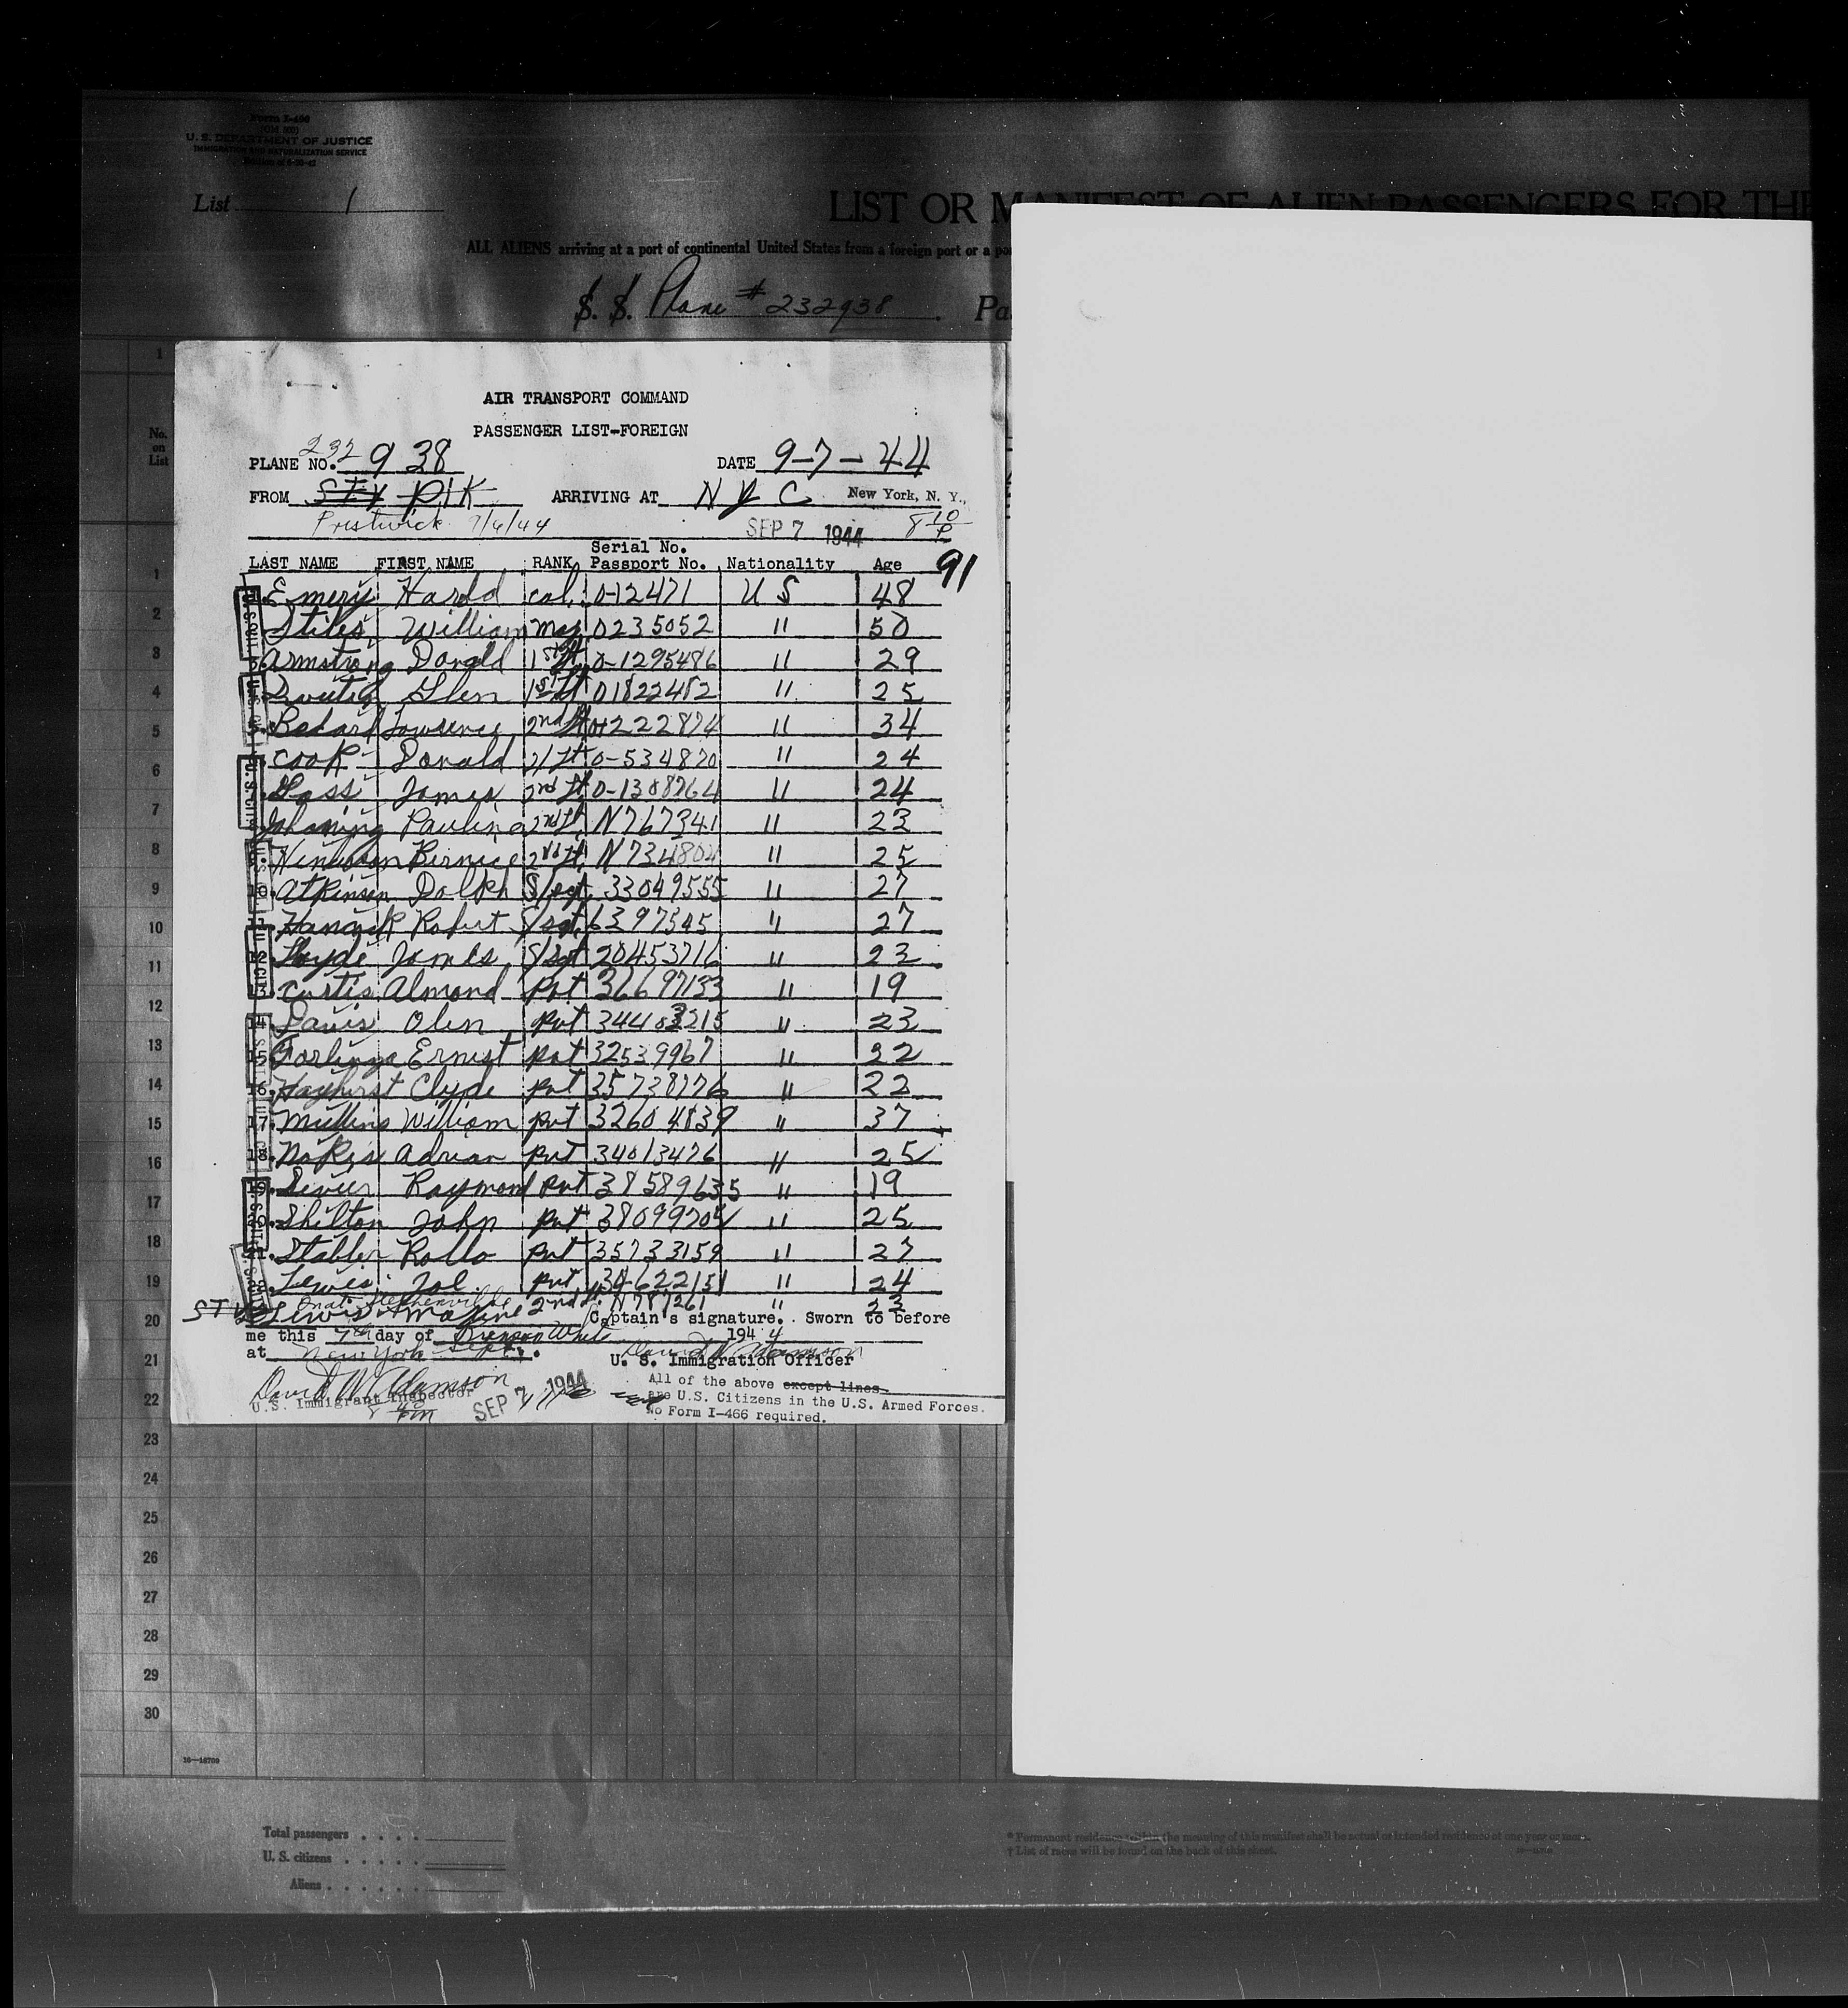 Form I-400
U. S. DEPARTMENT OF JUSTICE
IMMIGRATION AND NATURALIZATION SERVICE
List 1
LIST OR MANIFEST OF ALIEN PASSENGERS FOR THE
ALL ALIENS arriving at a port of continental United States from a foreign port or a po
S. S. Plane # 232938 . Pa
AIR TRANSPORT COMMAND
PASSENGER LIST-FOREIGN
PLANE NO. 232 938 DATE 9-7-44
FROM STV PIK ARRIVING AT NYC New York, N. Y.,
Prestwick 9/6/44 SEP 7 1944 8 10 P
LAST NAME FIRST NAME RANK Serial No. Passport No. Nationality Age 91
Emery Harold Col. 0-12471 US 48
Stiles William Maj 0235052 " 50
Armstrong Donald 1st Lt 0-1295486 " 29
Glen 1st Lt 01822482 " 25
5. Bedard Lawrence 2nd Lt 01222874 " 34
Cook Donald 2/Lt 0-534870 " 24
Gass James 2nd Lt 0-1308764 " 24
Pauline 2nd Lt N767341 " 23
Bernice 2nd Lt N734804 " 25
10. Atkinson Dolph S/Sgt 33049555 " 27
11. Hancock Robert S/Sgt 6397545 " 27
12. James S/Sgt 20453716 " 23
13. Curtis Almond Pvt 36697133 " 19
14. Davis Olen Pvt 34483215 " 23
15. Ernest Pvt 32539967 " 32
16. Hayhurst Clyde Pvt 35738176 " 22
17. Mullins William Pvt 32604839 " 37
18. Nokes Adrian Pvt 34013476 " 25
19. Sevier Raymond Pvt 38589635 " 19
20. Shilton John Pvt 38099705 " 25
21. Stabler Rollo Pvt 35733159 " 27
22. Lewis Joe Pvt 34622151 " 24
Stephenville
STV Lewis Maxine 2nd Lt. N787261 " 23
Captain's signature. Sworn to before
me this 7th day of White 194 4
at New York Sept. David W Adamson
U. S. Immigration Officer
David W. Adamson
U.S. Immigrant Inspector
SEP 7 1944
All of the above except lines
are U.S. Citizens in the U.S. Armed Forces.
No Form I-466 required.
No. on List
1
2
3
4
5
6
7
8
9
10
11
12
13
14
15
16
17
18
19
20
21
22
23
24
25
26
27
28
29
30
Total passengers . . . .
U. S. citizens . . . . .
Aliens . . . . . .
* Permanent residence within the meaning of this manifest shall be actual or intended residence of one year or more.
† List of races will be found on the back of this sheet.